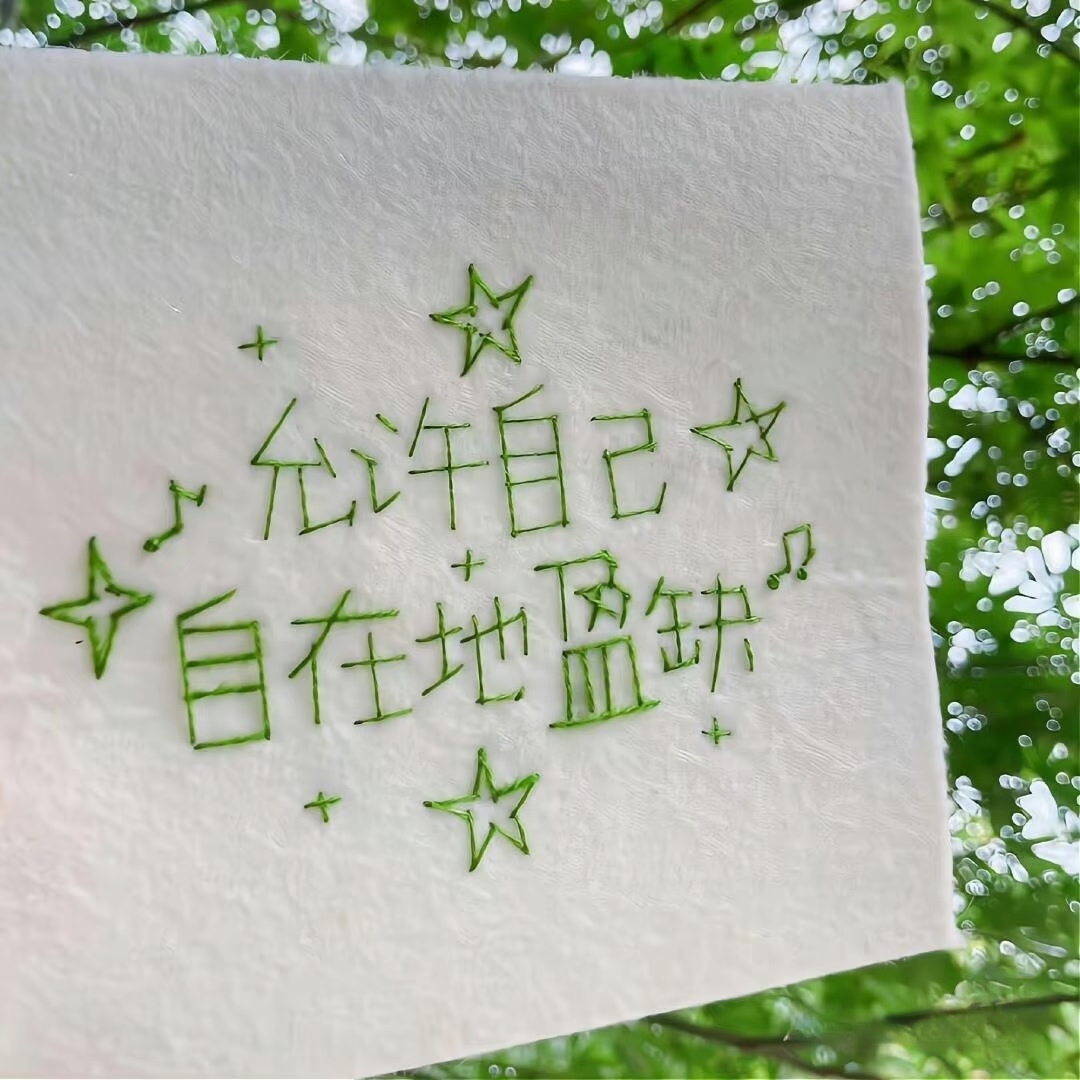 允许自己
自在地盈缺